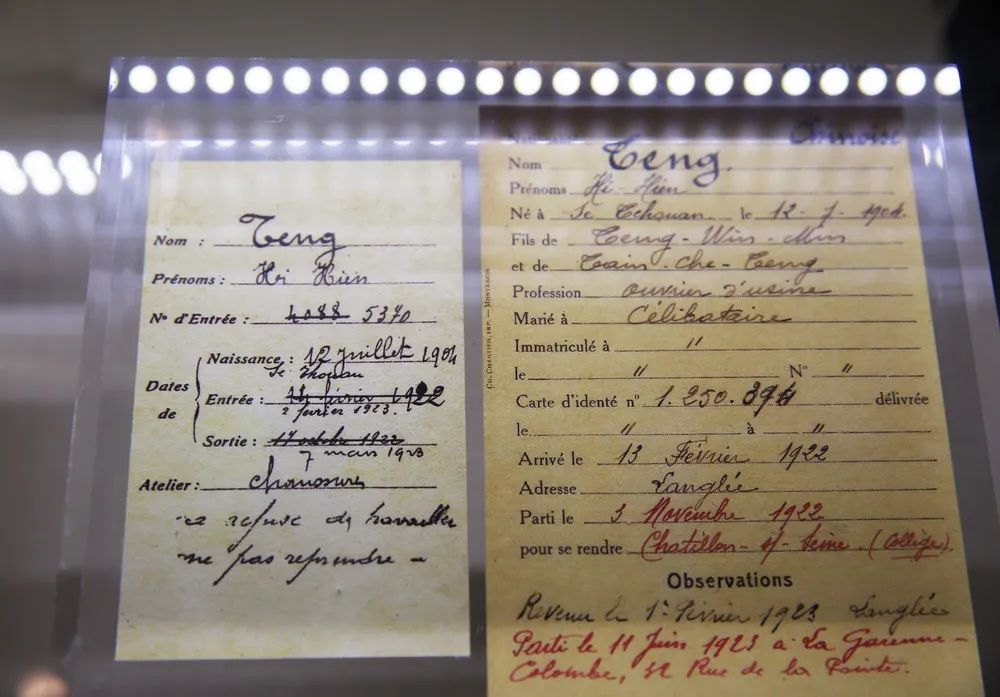 Nom : Teng
Prénoms : Hi Hien
No d'Entrée : 4088 5370
Dates de
Naissance : 12 Juillet 1904
Se Thouan
Entrée : 14 février 1922
2 fevrier 1923.
Sortie : 17 octobre 1922
7 mars 1923
Atelier : Chaussures
a refusé de travailler
ne pas reprendre -
Nationalité Chinoise
Nom Teng.
Prénoms Hi-Hien
Né à Se Tchouan le 12-7-1904.
Fils de Teng-Win-Min
et de Tain-che-Teng
Profession ouvrier d'usine
Marié à Célibataire
Immatriculé à "
le " No "
Carte d'identé no 1.250.394 délivrée
le " à "
Arrivé le 13 Février 1922
Adresse Langlée
Parti le 3 Novembre 1922
pour se rendre Chatillon-s/-Seine. (Collège)
Observations
Revenu le 1er Février 1923 Langlée
Parti le 11 Juin 1923 à La Garenne-
Colombe, 32 Rue de la Pointe.
CH. CHAUVIER, IMP. — MONTARGIS